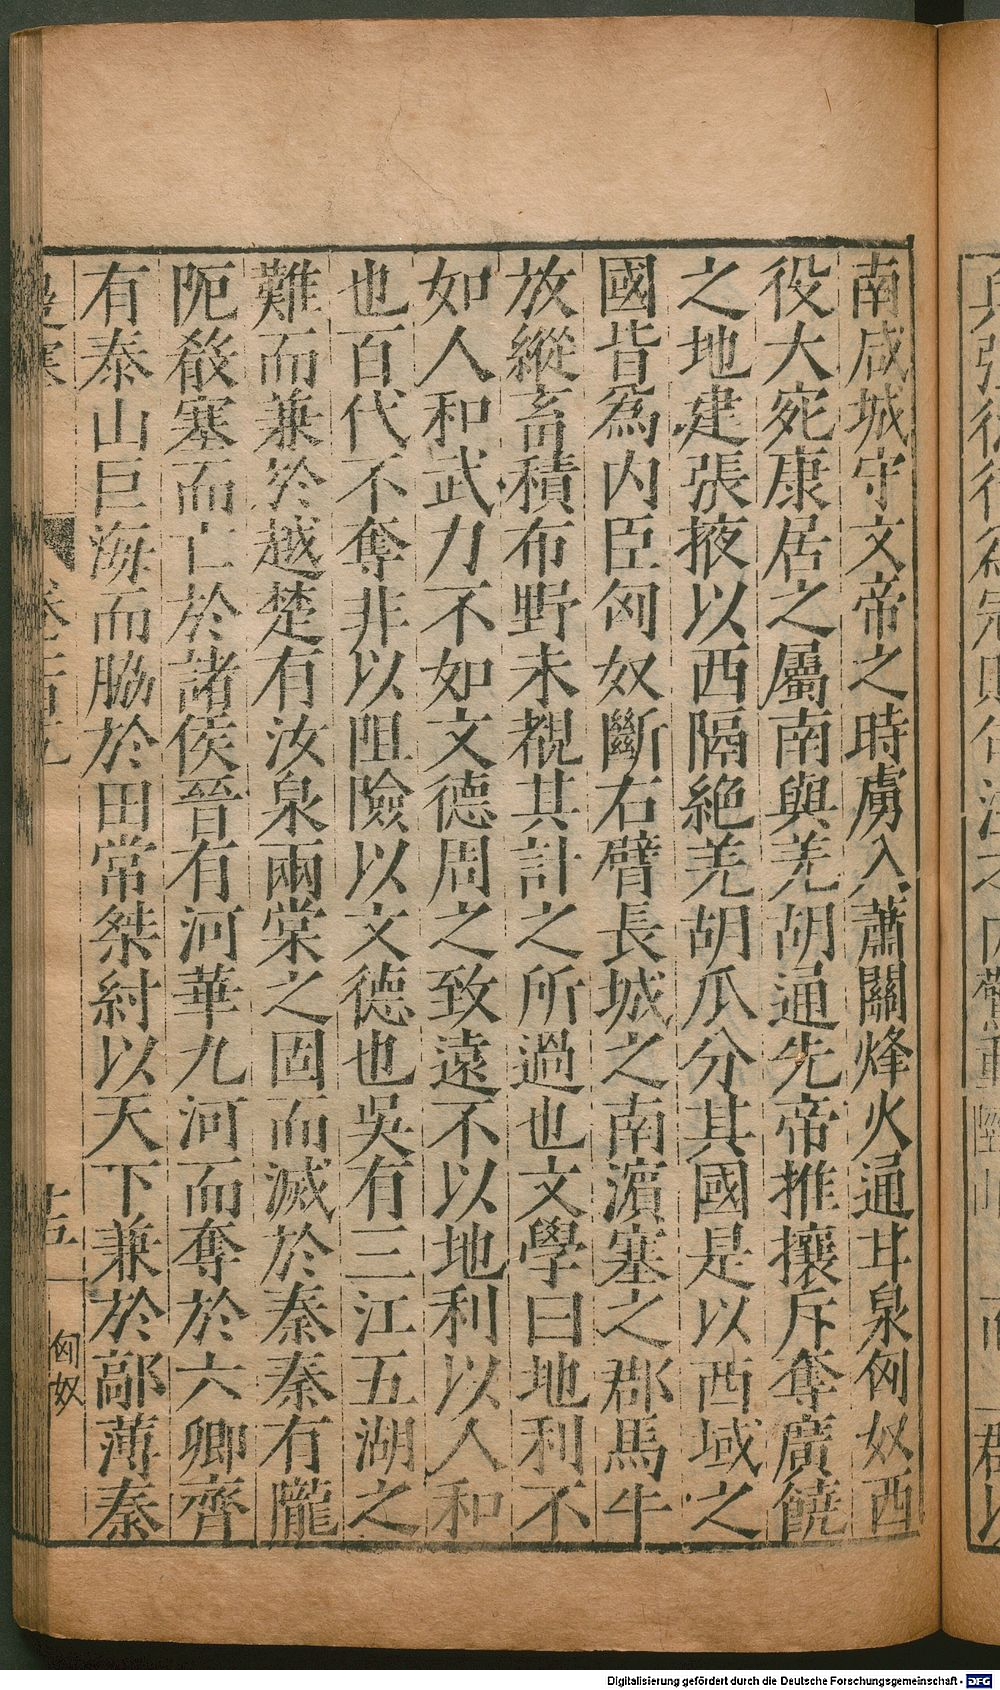 南咸城守文帝之時虜入蕭關烽火通甘泉匈奴西
役大宛康居之屬南與羌胡通先帝推攘斥奪廣饒
之地建張掖以西隔絶羌胡瓜分其國是以西域之
國皆爲内臣匈奴斷右臂長城之南濵塞之郡馬牛
放縱畜積布野未覩其計之所過也文學曰地利不
如人和武力不如文德周之致遠不以地利以人和
也百代不奪非以阻險以文德也吳有三江五湖之
難而兼於越楚有汝泉兩棠之固而滅於秦秦有隴
阨殽塞而亡於諸侯晉有河華九河而奪於六卿齊
有泰山巨海而脇於田常桀紂以天下兼於鄗薄秦
匈奴
Digitalisierung gefördert durch die Deutsche Forschungsgemeinschaft - DFG